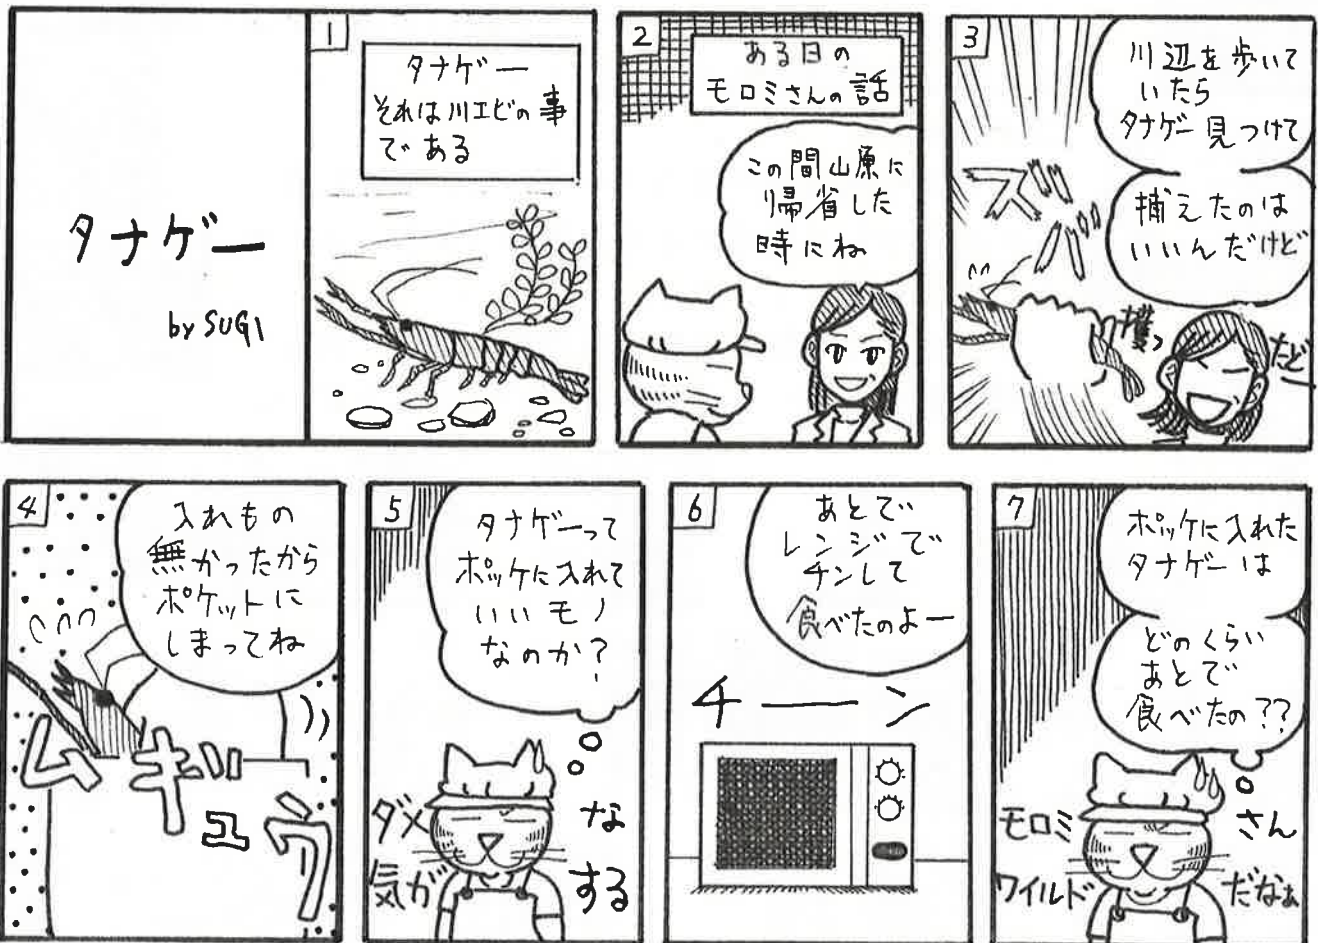 タナゲー
by SUGI
1
タナゲー
それは川エビの事
である
2
ある日の
モロミさんの話
この間山原に
帰省した
時にね
3
川辺を歩いて
いたら
タナゲー見つけて
捕えたのは
いいんだけど
ズババ
獲っ
たどー
4
入れもの
無かったから
ポケットに
しまってね
ムギュウ
5
タナゲーって
ポッケに入れて
いいモノ
なのか?
ダメな
気がする
6
あとで
レンジで
チンして
食べたのよー
チーン
7
ポッケに入れた
タナゲーは
どのくらい
あとで
食べたの??
モロミさん
ワイルドだなぁ